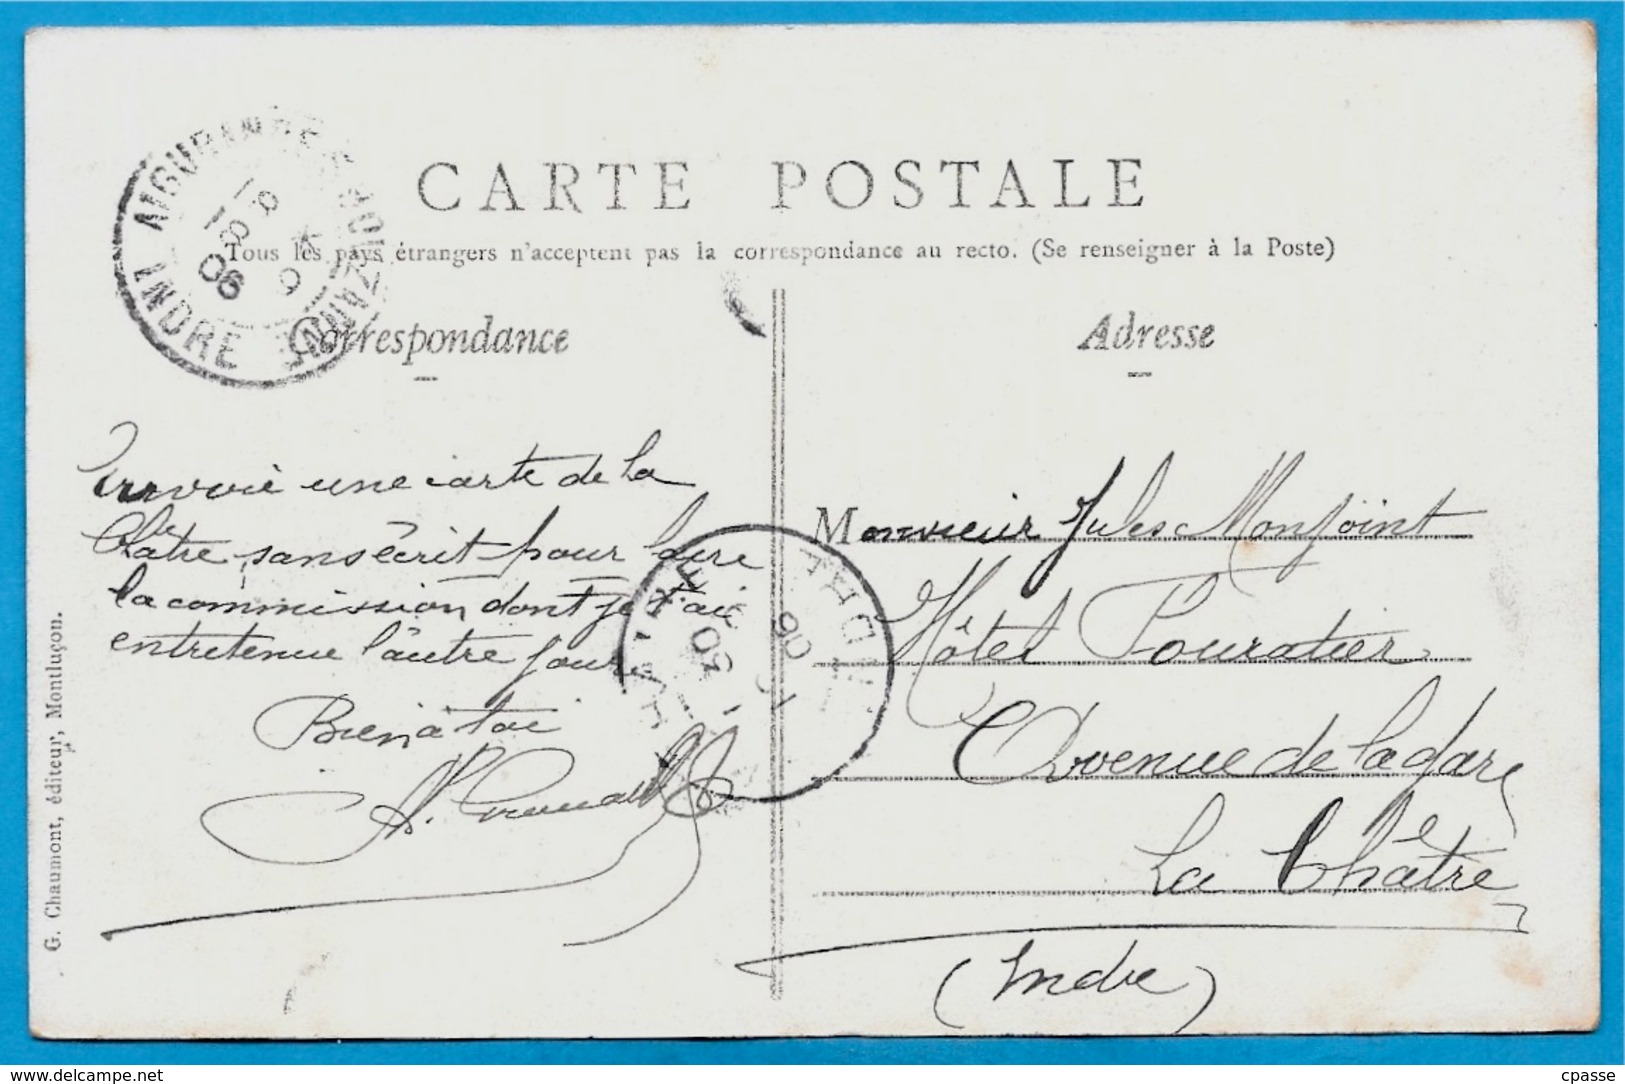 CARTE POSTALE
Tous les pays étrangers n'acceptent pas la correspondance au recto. (Se renseigner à la Poste)
Correspondance
Adresse
AIGURANDE
INDRE
18 8
06
une carte de la
Châtre, sans écrit pour faire
la commission dont je t'ai
entretenue l'autre jour
Bien à toi
Monsieur Jules Monjoint
Hôtel Pouratier
Avenue de la gare
La Châtre
(Indre)
G. Chaumont, éditeur, Montluçon.
Delcampe.net
cpasse